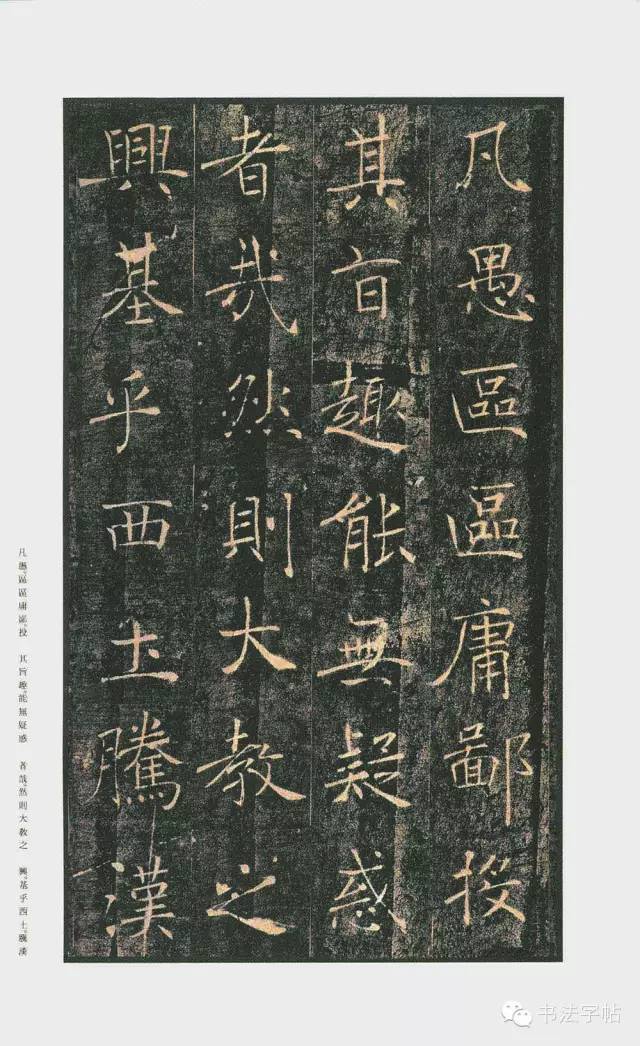 凡愚區區庸鄙投
其旨趣能無疑惑
者哉然則大教之
興基乎西土騰漢
凡愚。區區庸鄙。投　其旨趣。能無疑惑　者哉。然則大教之　興。基乎西土。騰漢
书法字帖